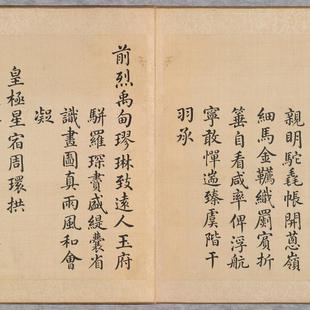 親明駝毳帳開蔥嶺
細馬金韉織罽賓折
箠自看咸率俾浮航
寧敢憚遄臻虞階干
羽羕
前烈禹甸璆琳致遠人玉府
駢羅琛賮盛緹囊省
識畫圖真雨風和會
凝
皇極星宿周環拱